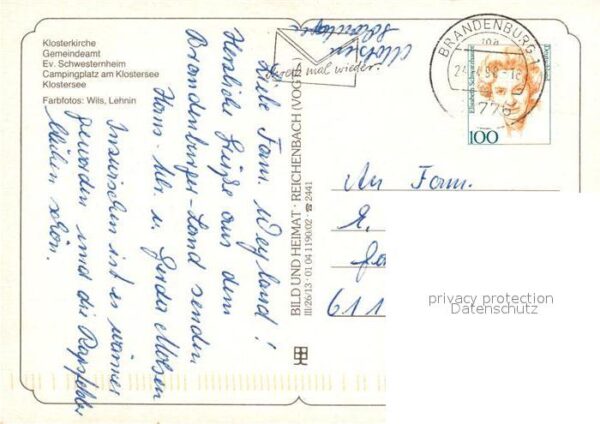 Klosterkirche
Gemeindeamt
Ev. Schwesternheim
Campingplatz am Klostersee
Klostersee
Farbfotos: Wils, Lehnin
Liebe Fam. Weyland!
Herzliche Grüße aus dem
Brandenburger-Land senden
Hans-Ulr. u. Gerda Molsen
Inzwischen ist es wärmer
geworden und die Rapsfelder
blühen schon.
BILD UND HEIMAT · REICHENBACH (VOGTL
III/26/13 · 01 04 1190/02 ☎ 2441
mal wieder!
BRANDENBURG 1
776
Elisabeth Schwarzhaupt
Deutschland
100
An Fam.
611
privacy protection
Datenschutz